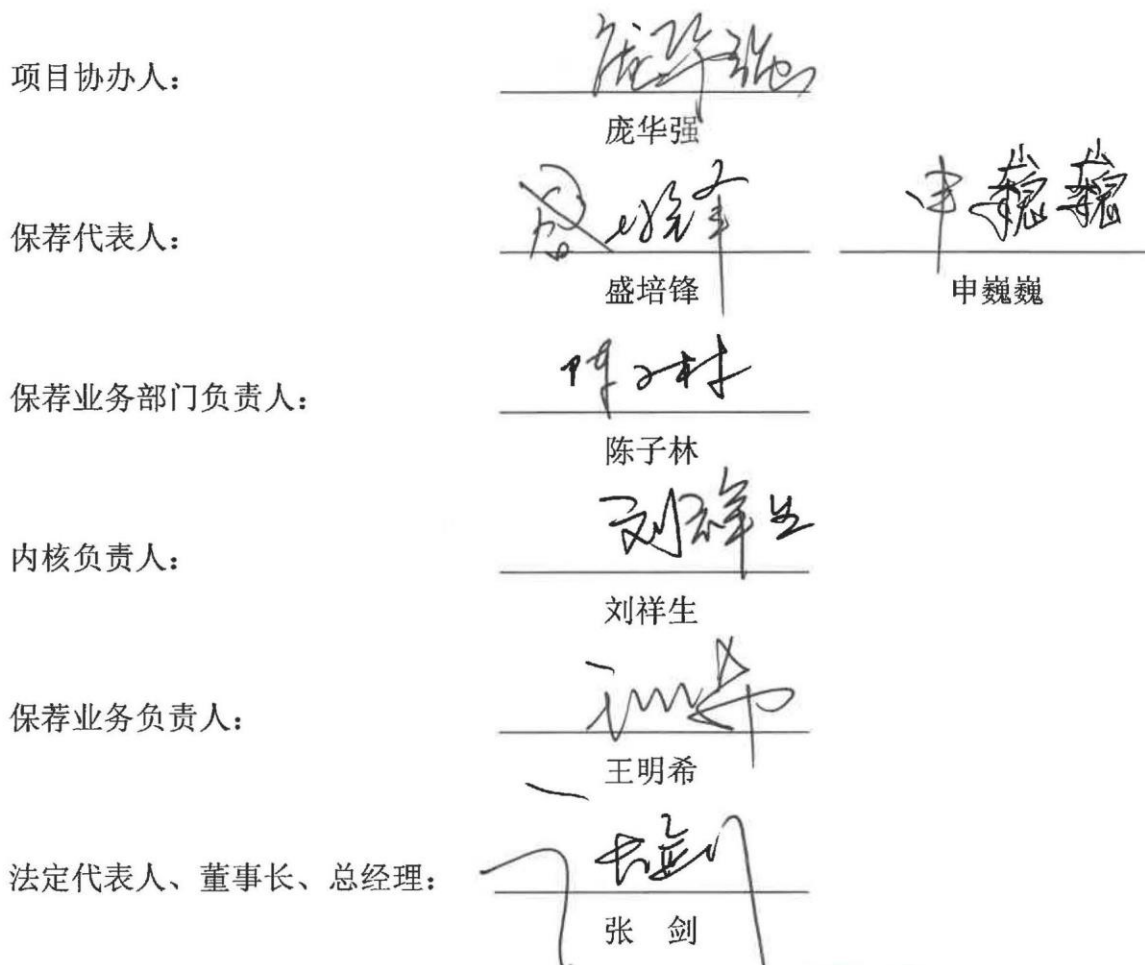 项目协办人：
庞华强
保荐代表人：
盛培锋 申巍巍
保荐业务部门负责人：
陈子林
内核负责人：
刘祥生
保荐业务负责人：
王明希
法定代表人、董事长、总经理：
张 剑